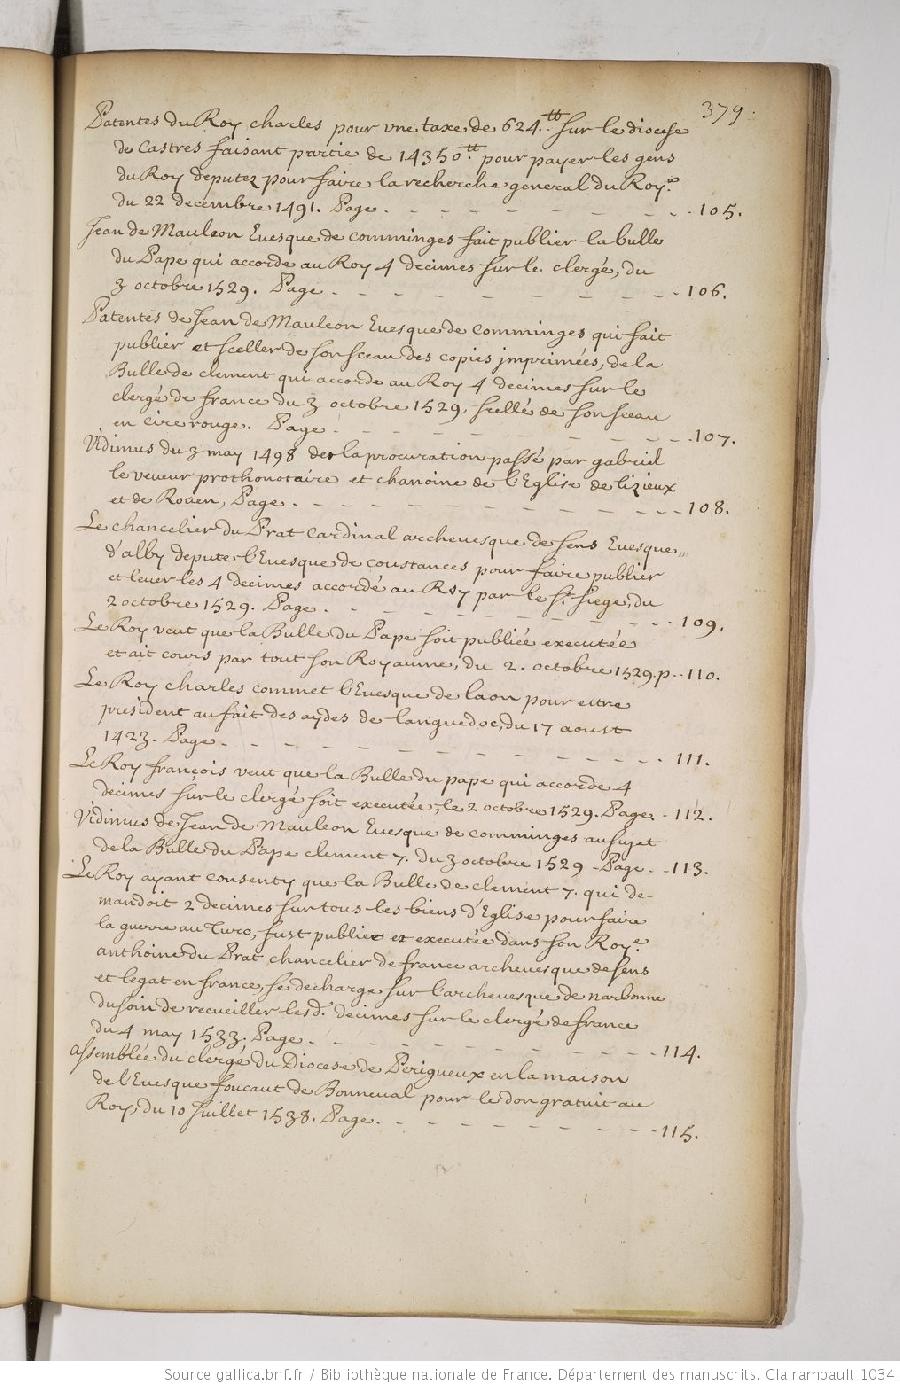 379.
Patentes du Roy charles pour vne taxe de 624.tt sur le diocese
de Castres faisant partie de 14350tt pour payer les gens
du Roy deputez pour faire la recherche general du Roy.e
du 22 decembre 1491. Page. - - - - - - - 105.
Jean de Mauleon Euesque de comminges fait publier la bulle
du Pape qui accorde au Roy 4 decimes sur le clergé, du
3 octobre 1529. Page. - - - - - - - 106.
Patentes de Jean de Mauleon Euesque de comminges qui fait
publier et sceller de son sceau des copies jmprimées, de la
Bulle de clement qui accorde au Roy 4 decimes sur le
clergé de france du 3 octobre 1529. scellé de son sceau
en cire rouge. Page. - - - - - - - 107.
Vidimus du 3 may 1498 de la procuration passé par gabriel
le veneur prothonotaire et chanoine de l'Eglise de lizieux
et de Rouen, Page. - - - - - - - 108.
Le chancelier du Prat Cardinal archeuesque de sens Euesque
d'alby depute l'Euesque de coustances pour faire publier
et leuer les 4 decimes accordé au Roy par le St. siege, du
2 octobre 1529. Page. - - - - - - - 109.
Le Roy veut que la Bulle du Pape soit publiée executée
et ait cours par tout son Royaume, du 2. octobre 1529. p. - 110.
Le Roy charles commet l'Euesque de laon pour estre
president au fait des aydes de languedoc, du 17 aoust
1423. Page. - - - - - - - 111.
Le Roy françois veut que la Bulle du pape qui accorde 4
decimes sur le clergé soit executée, le 2 octobre 1529. Page. - 112.
Vidimus de Jean de Mauleon Euesque de comminges au sujet
de la Bulle du Pape clement 7. du 3 octobre 1529. Page. - 113.
Le Roy ayant consenty que la Bulle de clement 7. qui de-
mandoit 2 decimes sur tous les biens d'Eglise pour faire
la guerre au Turc, fust publiée et executée dans son Roy.e
anthoine du Prat chancelier de france archeuesque de sens
et legat en france, se decharge sur l'archeuesque de narbonne
du soin de recueillir les d. decimes sur le clergé de france
du 4 may 1533. Page. - - - - - - - 114.
Assemblée du clergé du Diocese de Perigueux en la maison
de l'Euesque foucaut de Bonneval pour le don gratuit au
Roy, du 10 Juillet 1538. Page. - - - - - - - 115.
Source gallica.bnf.fr / Bibliothèque nationale de France. Département des manuscrits. Clairambault 1034